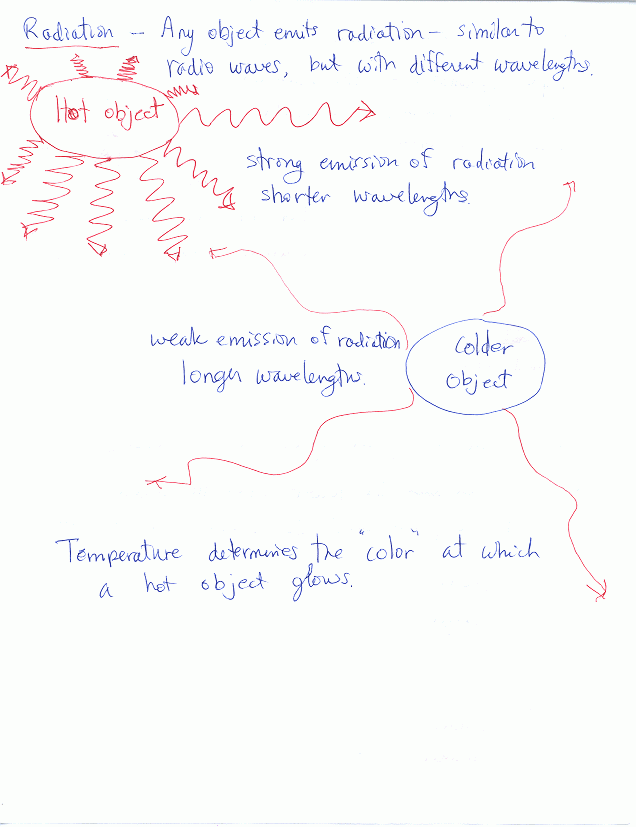 Radiation -- Any object emits radiation - similar to
radio waves, but with different wavelengths.
Hot object
strong emission of radiation
shorter wavelengths.
weak emission of radiation
longer wavelengths.
Colder
Object
Temperature determines the "color" at which
a hot object glows.